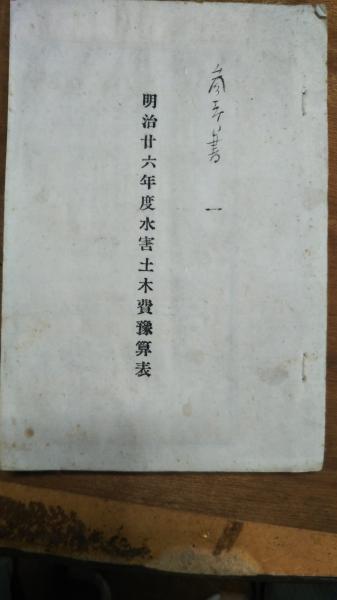 参考書 一
明治廿六年度水害土木費豫算表